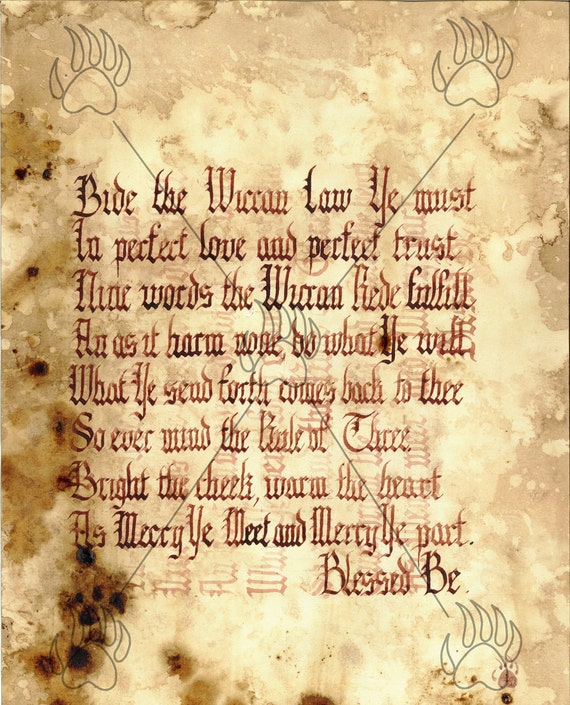 Bide the Wiccan Law Ye must
In perfect love and perfect trust
Nine words the Wiccan Rede fulfill
An as it harm none, do what Ye will
What Ye send forth comes back to thee
So ever mind the Rule of Three
Bright the cheek, warm the heart
As Merry Ye Meet and Merry Ye part.
Blessed Be.